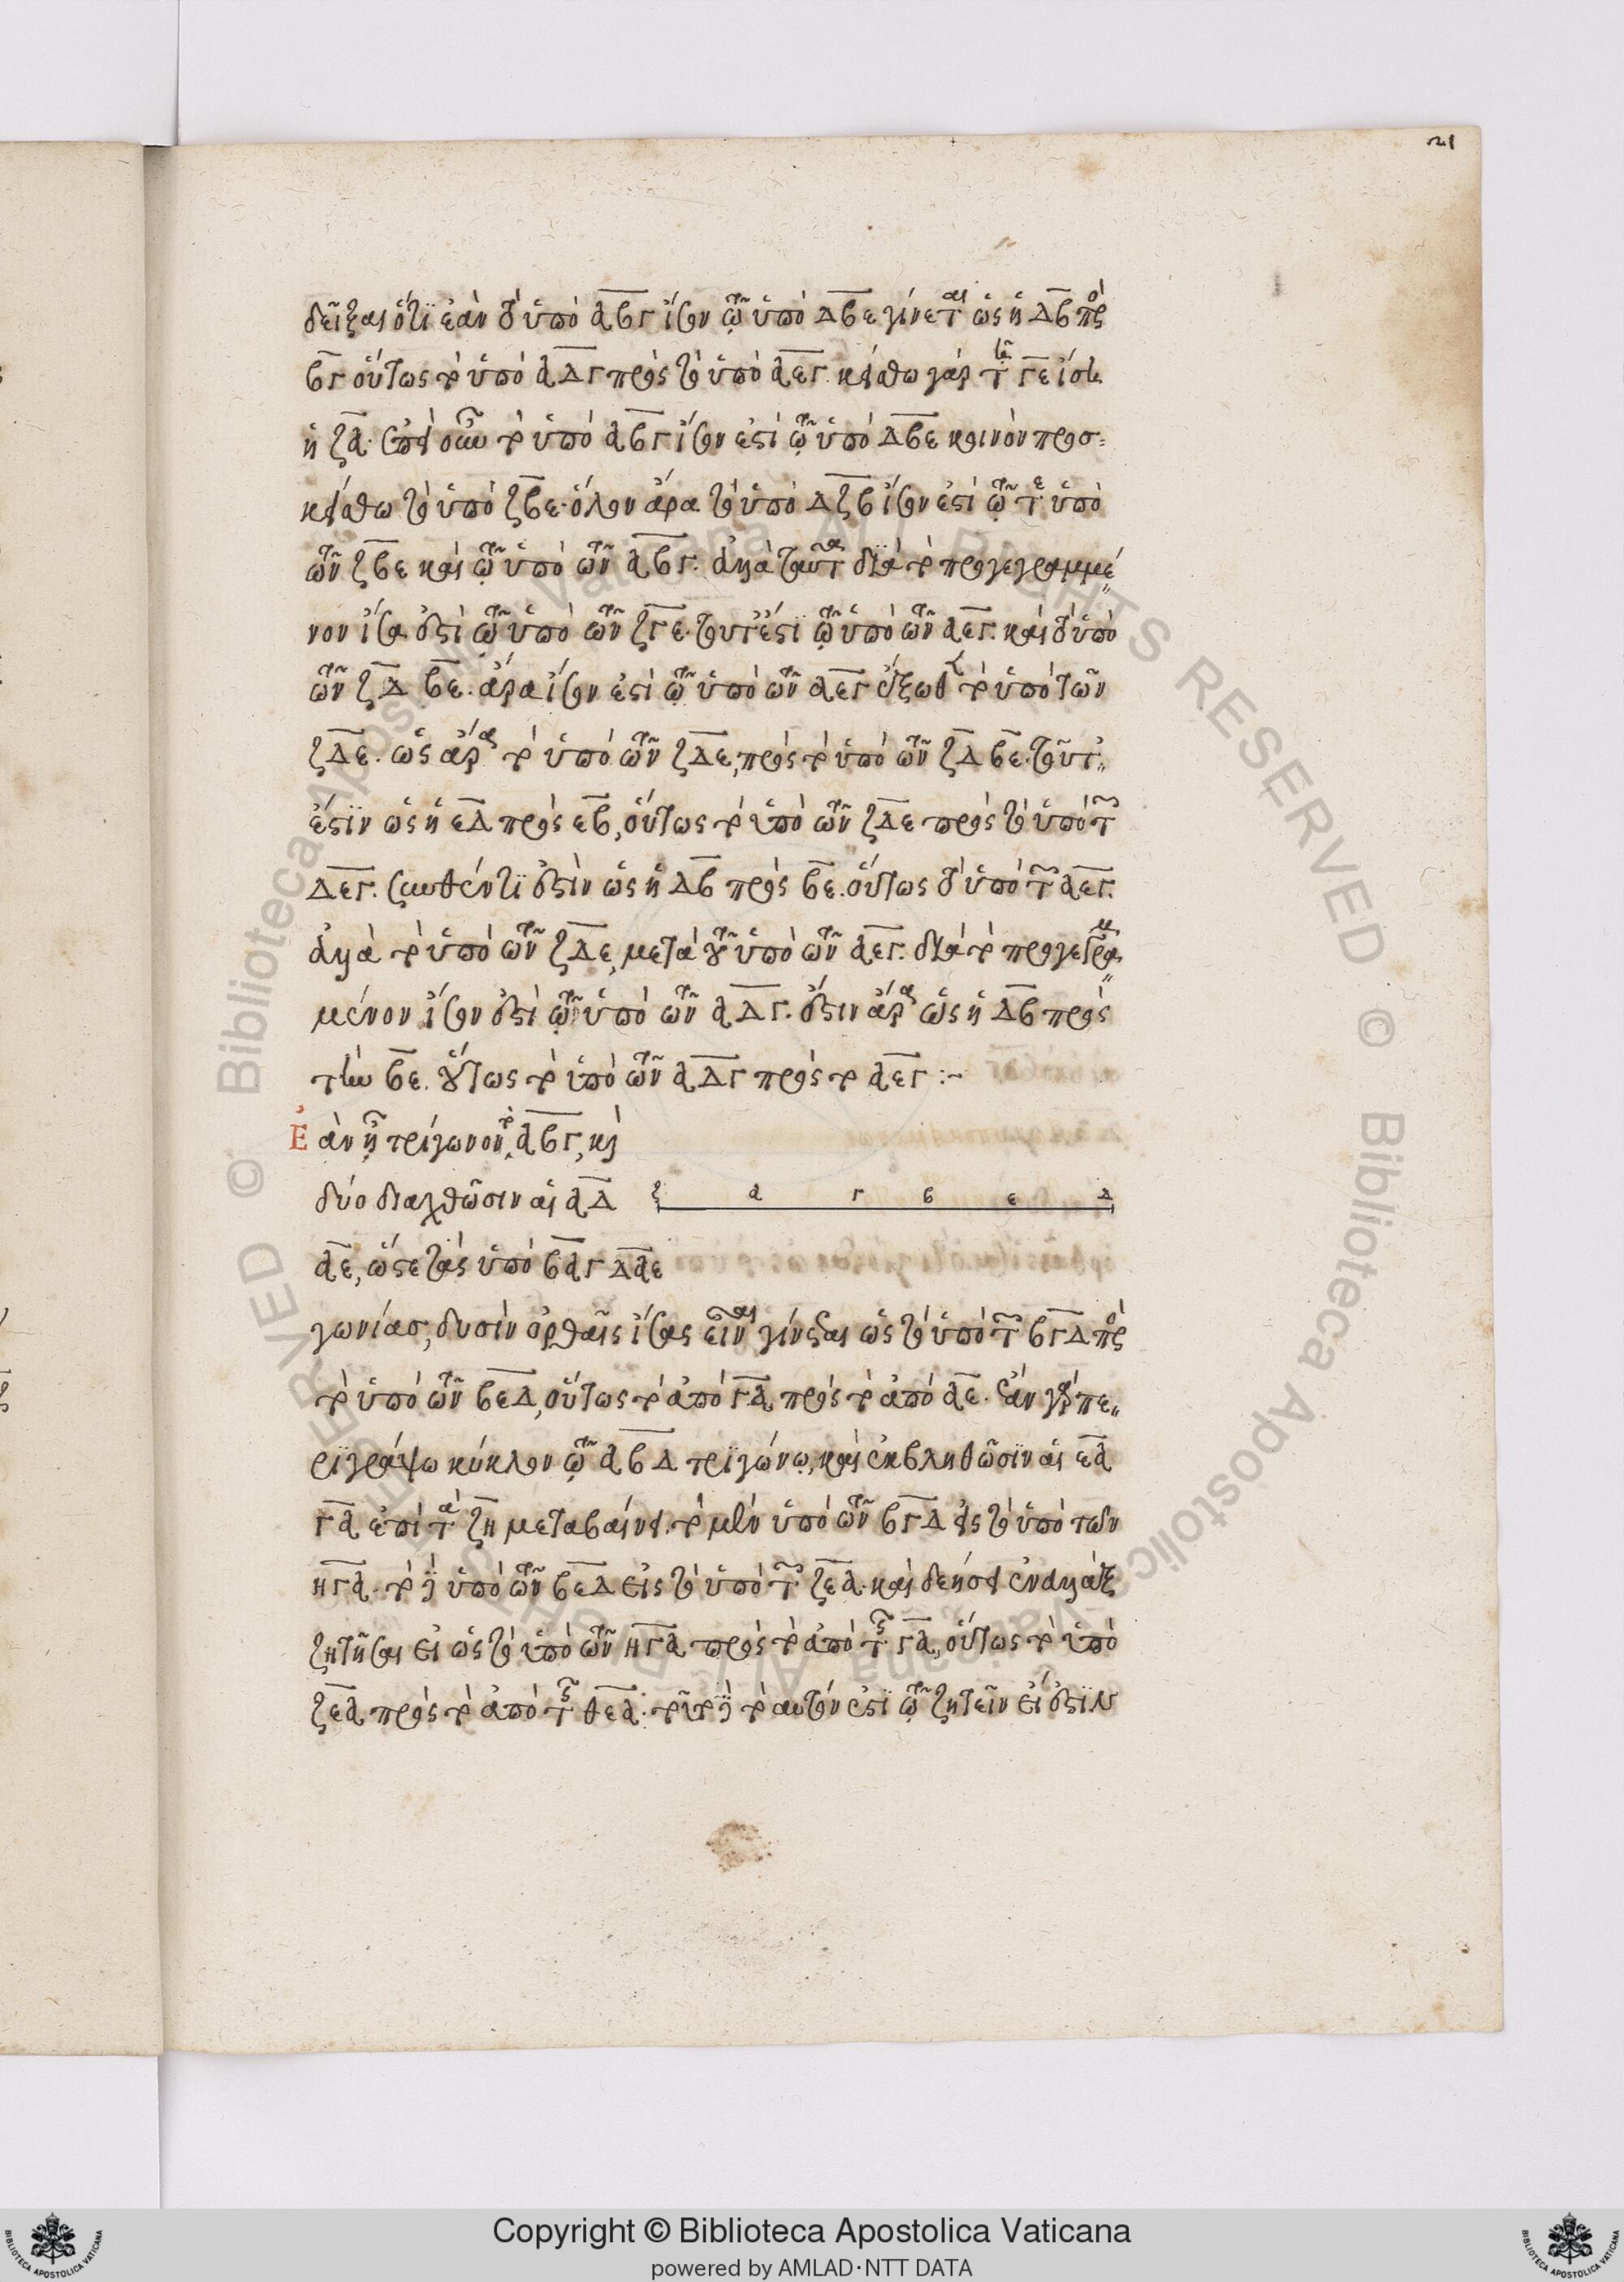 21
δεῖξαι ὅτι ἐὰν τὸ ὑπὸ αβγ ἴσον τῷ ὑπὸ Δβε γίνεται ὡς ἡ Δβ πρὸς
βγ οὕτως τὸ ὑπὸ αΔγ πρὸς τὸ ὑπὸ αεγ. κείσθω γὰρ τῇ γε ἴση
ἡ ζα. ἐπεὶ οὖν τὸ ὑπὸ αβγ ἴσον ἐστὶ τῷ ὑπὸ Δβε κοινὸν προσ
κείσθω τὸ ὑπὸ ζβε. ὅλον ἄρα τὸ ὑπὸ Δζβ ἴσον ἐστὶ τῷ τε ὑπὸ
τῶν ζβε καὶ τῷ ὑπὸ τῶν αβγ. ἀλλὰ ταῦτα διὰ τὸ προγεγραμμέ
νον ἴσα ἐστὶ τῷ ὑπὸ τῶν ζγε. τουτέστι τῷ ὑπὸ τῶν αεγ. καὶ τὸ ὑπὸ
τῶν ζΔ βε. ἄρα ἴσον ἐστὶ τῷ ὑπὸ τῶν αεγ ἔξωθεν τὸ ὑπὸ τῶν
ζΔε. ὡς ἄρα τὸ ὑπὸ τῶν ζΔε, πρὸς τὸ ὑπὸ τῶν ζΔ βε. τουτ
έστιν ὡς ἡ εΔ πρὸς εβ, οὕτως τὸ ὑπὸ τῶν ζΔε πρὸς τὸ ὑπὸ τῶν
Δεγ. συνθέντι ἐστὶν ὡς ἡ Δβ πρὸς βε. οὕτως τὸ ὑπὸ τῶν αεγ.
ἀλλὰ τὸ ὑπὸ τῶν ζΔε, μετὰ τοῦ ὑπὸ τῶν αεγ. διὰ τὸ προγεγραμ
μένον ἴσον ἐστὶ τῷ ὑπὸ τῶν αΔγ. ἔστιν ἄρα ὡς ἡ Δβ πρὸς
τὴν βε. οὕτως τὸ ὑπὸ τῶν αΔγ πρὸς τὸ αεγ :~
Ἐὰν ᾖ τρίγωνον τὸ αβγ, καὶ
δύο διαχθῶσιν αἱ αΔ
ζ α γ β ε Δ
αε, ὥστε τὰς ὑπὸ βαγ Δαε
γωνίας, δυσὶν ὀρθαῖς ἴσας εἶναι γίνεσθαι ὡς τὸ ὑπὸ τῶν βγΔ πρὸς
τὸ ὑπὸ τῶν βεΔ, οὕτως τὸ ἀπὸ γα πρὸς τὸ ἀπὸ αε. ἐὰν γὰρ πε
ριγράψω κύκλον τῷ αβΔ τριγώνῳ, καὶ ἐκβληθῶσιν αἱ εα
γα ἐπὶ τὰ ζη μεταβαίνει. τὸ μὲν ὑπὸ τῶν βγΔ εἰς τὸ ὑπὸ των
ηγα. τὸ δὲ ὑπὸ τῶν βεΔ εἰς τὸ ὑπὸ τῶν ζεα. καὶ δεήσει ἐναλλὰξ
ζητῆσαι εἰ ὡς τὸ ὑπὸ τῶν ηγα πρὸς τὸ ἀπὸ τῆς γα, οὕτως τὸ ὑπὸ
ζεα πρὸς τὸ ἀπὸ τῆς θεα. τοῦτο δὲ τὸ αυτόν ἐστι τῷ ζητεῖν εἰ ἔστιν
Copyright © Biblioteca Apostolica Vaticana
powered by AMLAD·NTT DATA